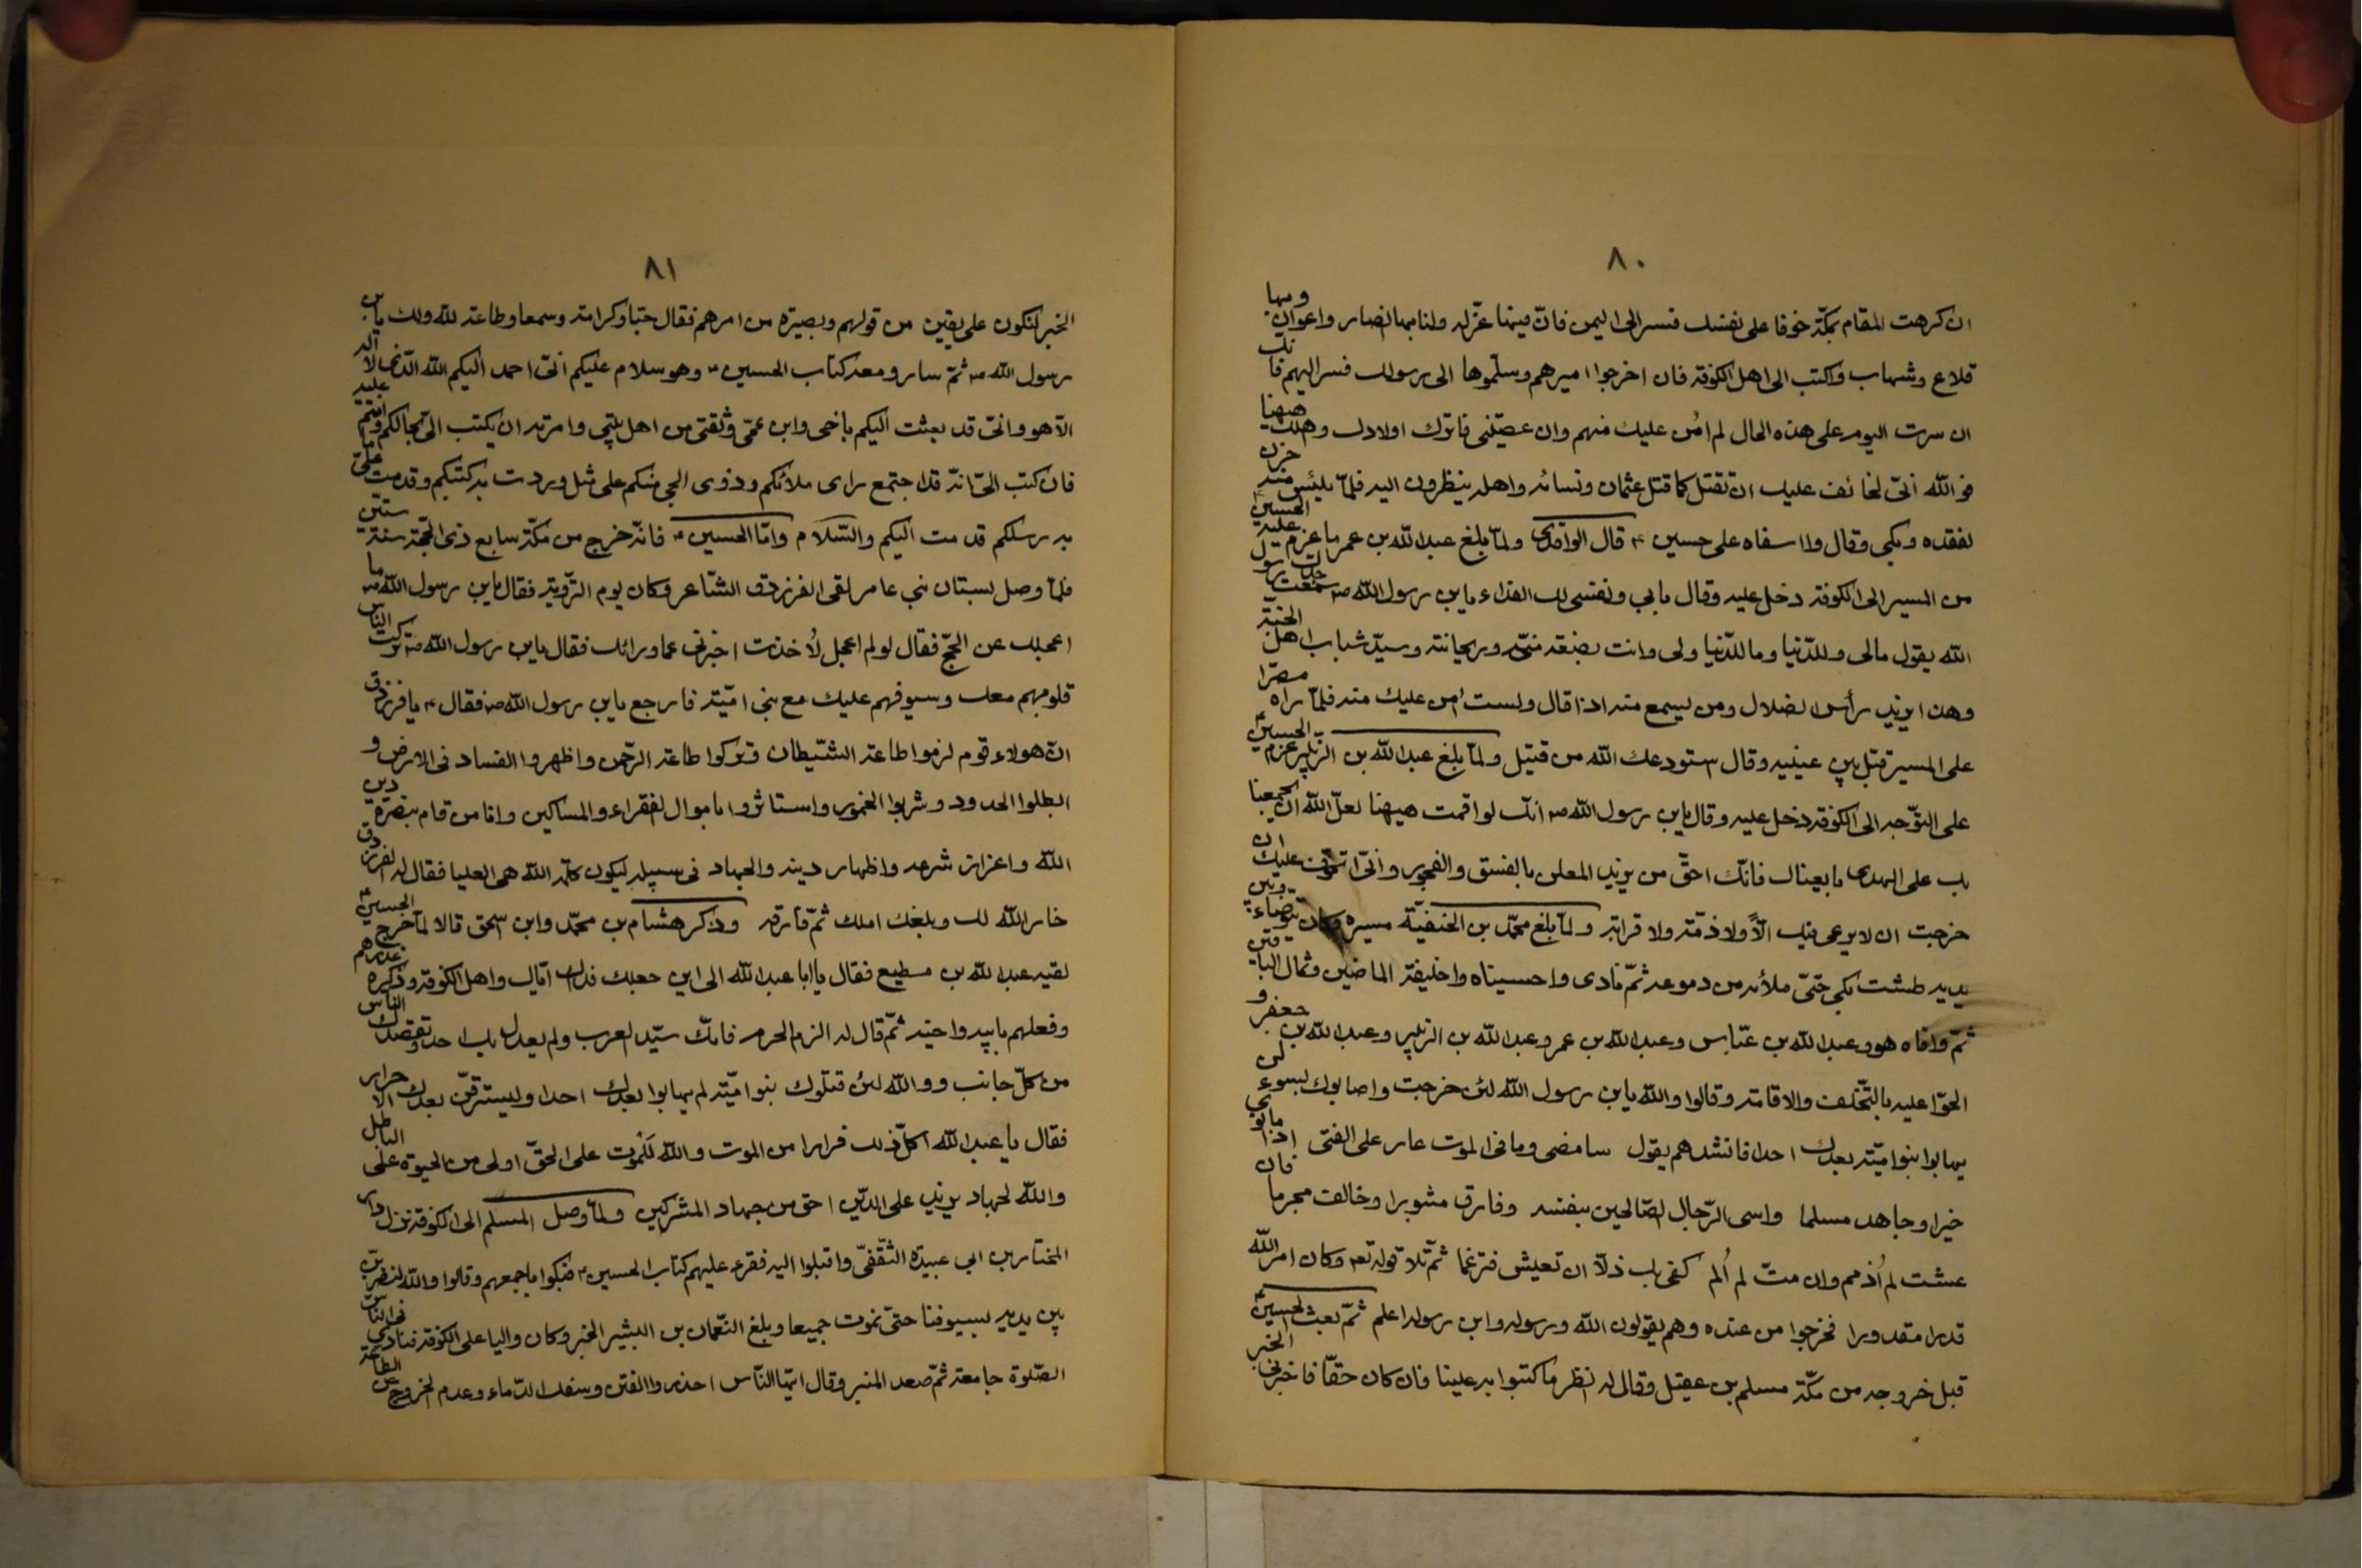 ٨٠
ان كرهت المقام بمكّة خوفا على نفسك فسر الى اليمن فانّ فيها عزلة ولنا بها انصار واعوان وبها
قلاع وشهاب واكتب الى اهل الكوفة فان اخرجوا اميرهم وسلّموها الى رسولك فسر اليهم فانّك
ان سرت اليوم على هذه الحال لم امن عليك منهم وان عصيتنى فاترك اولادك واهلك هيهنا
فوالله انّى لخائف عليك ان تقتل كما قتل عثمان ونسائه واهله ينظرون اليه فلمّا يئس منه حزن
لفقده وبكى وقال وا اسفاه على حسين ع قال الواقدى ولمّا بلغ عبدالله بن عمر ما عزم عليه الحسين ع
من المسير الى الكوفة دخل عليه وقال بابي ونفسى لك الفداء يابن رسول الله ص سمعت جدّك رسول
الله يقول مالى وللدّنيا وما للدّنيا ولى وانت بضعة منّى وريحانته وسيّد شباب اهل الجنّة
وهذا يزيد رأس الضلال ومن يسمع منه اذا قال ولست امن عليك منه فلمّا راه مصرّا
على المسير قبّل بين عينيه وقال استودعك الله من قتيل ولمّا بلغ عبدالله بن الزبير عزم الحسين ع
على التوّجه الى الكوفة دخل عليه وقال يابن رسول الله ص انّك لو اقمت هيهنا لعلّ الله ان يجمعنا
بك على الهدى بايعناك فانّك احقّ من يزيد المعلن بالفسق والفجور وانّى اتخوّف عليك ان
خرجت ان لا يرعى فيك الّا ولا ذمّة ولا قرابة ولمّا بلغ محمّد بن الحنفيّة مسيره وكان يتوضّاء وبين
يديه طشت بكى حتّى ملأه من دموعه ثمّ نادى وا حسيناه وا خليفة الماضين وثمال الباقين
ثمّ وافاه هو وعبدالله بن عبّاس وعبدالله بن عمر وعبدالله بن الزبير وعبدالله بن جعفر و
الحوّا عليه بالتّخلف والاقامة وقالوا والله يابن رسول الله لئن خرجت واصابوك بسوء لن
يهابوا بنوا ميّة بعدك احدا فانشدهم يقول سامضى وما فى الموت عار على الفتى اذا ما نوى
خيرا وجاهد مسلما واسى الرّجال الصّالحين بنفسه وفارق مثبورا وخالف مجرما فان
عشت لم أُذمم وان متّ لم أُلم كفى بك ذلّا ان تعيش فترغما ثمّ تلا قوله تعه وكان امر الله
قدرا مقدورا فخرجوا من عنده وهم يقولون الله ورسوله وابن رسوله اعلم ثمّ بعث الحسين ع
قبل خروجه من مكّة مسلم بن عقيل وقال له انظر ما كتبوا به علينا فان كان حقّا فاخبرنى الخبر
٨١
الخبر لنكون على يقين من قولهم وبصيرة من امرهم فقال حبّا وكرامة وسمعا وطاعة لله ولك يابن
رسول الله ص ثمّ سار ومعه كتاب الحسين ع وهو سلام عليكم انّى احمد اليكم الله الّذى لا اله
الّا هو وانّى قد بعثت اليكم باخى وابن عمّى وثقتى من اهل بيتى وامرته ان يكتب الىّ بحالكم وما انتم عليه
فان كتب الىّ انّه قد اجتمع راى ملائكم وذوى الحجى منكم على مثل وردت به كتبكم وقدمت علىّ
به رسلكم قدمت اليكم والسّلام وامّا الحسين ع فانّه خرج من مكّة سابع ذى الحّجة سنة ستّين
فلمّا وصل بستان بنى عامر لقى الفرزدق الشّاعر وكان يوم التّروية فقال يابن رسول الله ص ما
اعجلك عن الحجّ فقال لو لم اعجل لأُخذت اخبرنى عما ورائك فقال يابن رسول الله ص تركت الناس
قلوبهم معك وسيوفهم عليك مع بنى اميّة فارجع يابن رسول الله ص فقال ع يا فرزدق
انّ هولاء قوم لزموا طاعة الشّيطان وتركوا طاعة الرّحمن واظهروا الفساد فى الارض و
ابطلوا الحدود وشربوا الخمور واستاثروا باموال الفقراء والمساكين وانا من قام بنصرة دين
الله واعزاز شرعه واظهار دينه والجهاد فى سبيله ليكون كلمة الله هى العليا فقال له الفرزدق
خار الله لك وبلغك املك ثمّ فارقه وذكر هشام بن محمّد وابن اسحق قالا لمّا خرج الحسين ع
لقيه عبدالله بن مطيع فقال يا ابا عبدالله الى اين جعلت فداك ايّاك واهل الكوفة وذكره غدرهم
وفعلهم بابيه واخيه ثمّ قال له الزم الحرم فانّك سيّد العرب ولم يعدل بك احد وتقصدك الناس
من كلّ جانب ووالله لئن قتلوك بنوا ميّة لم يهابوا بعدك احدا وليسترقنّ بعدك الاحرار
فقال يا عبدالله اكلّ ذلك فرارا من الموت والله لَلموت على الحقّ اولى من الحيوة على الباطل
والله لجهاد يزيد على الدّين احق من جهاد المشركين ولمّا وصل المسلم الى الكوفة نزل دار
المختار بن ابي عبيدة الثّقفىّ واقبلوا اليه فقرء عليهم كتاب الحسين ع فبكوا باجمعهم وقالوا والله لنضربنّ
بين يديه بسيوفنا حتّى نموت جميعا وبلغ النّعمان بن البشير الخبر وكان واليا على الكوفة فنادى فى النّاس
الصّلوة جامعة ثمّ صعد المنبر وقال ايّها النّاس احذروا الفتن وسفك الدّماء وعدم الخروج عن الطاعة